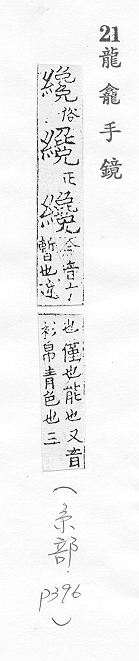 21
龍龕手鏡
俗
正
纔
今音
暫也近
也僅也能也又音
衫帛青色也三
(糸部.p396)